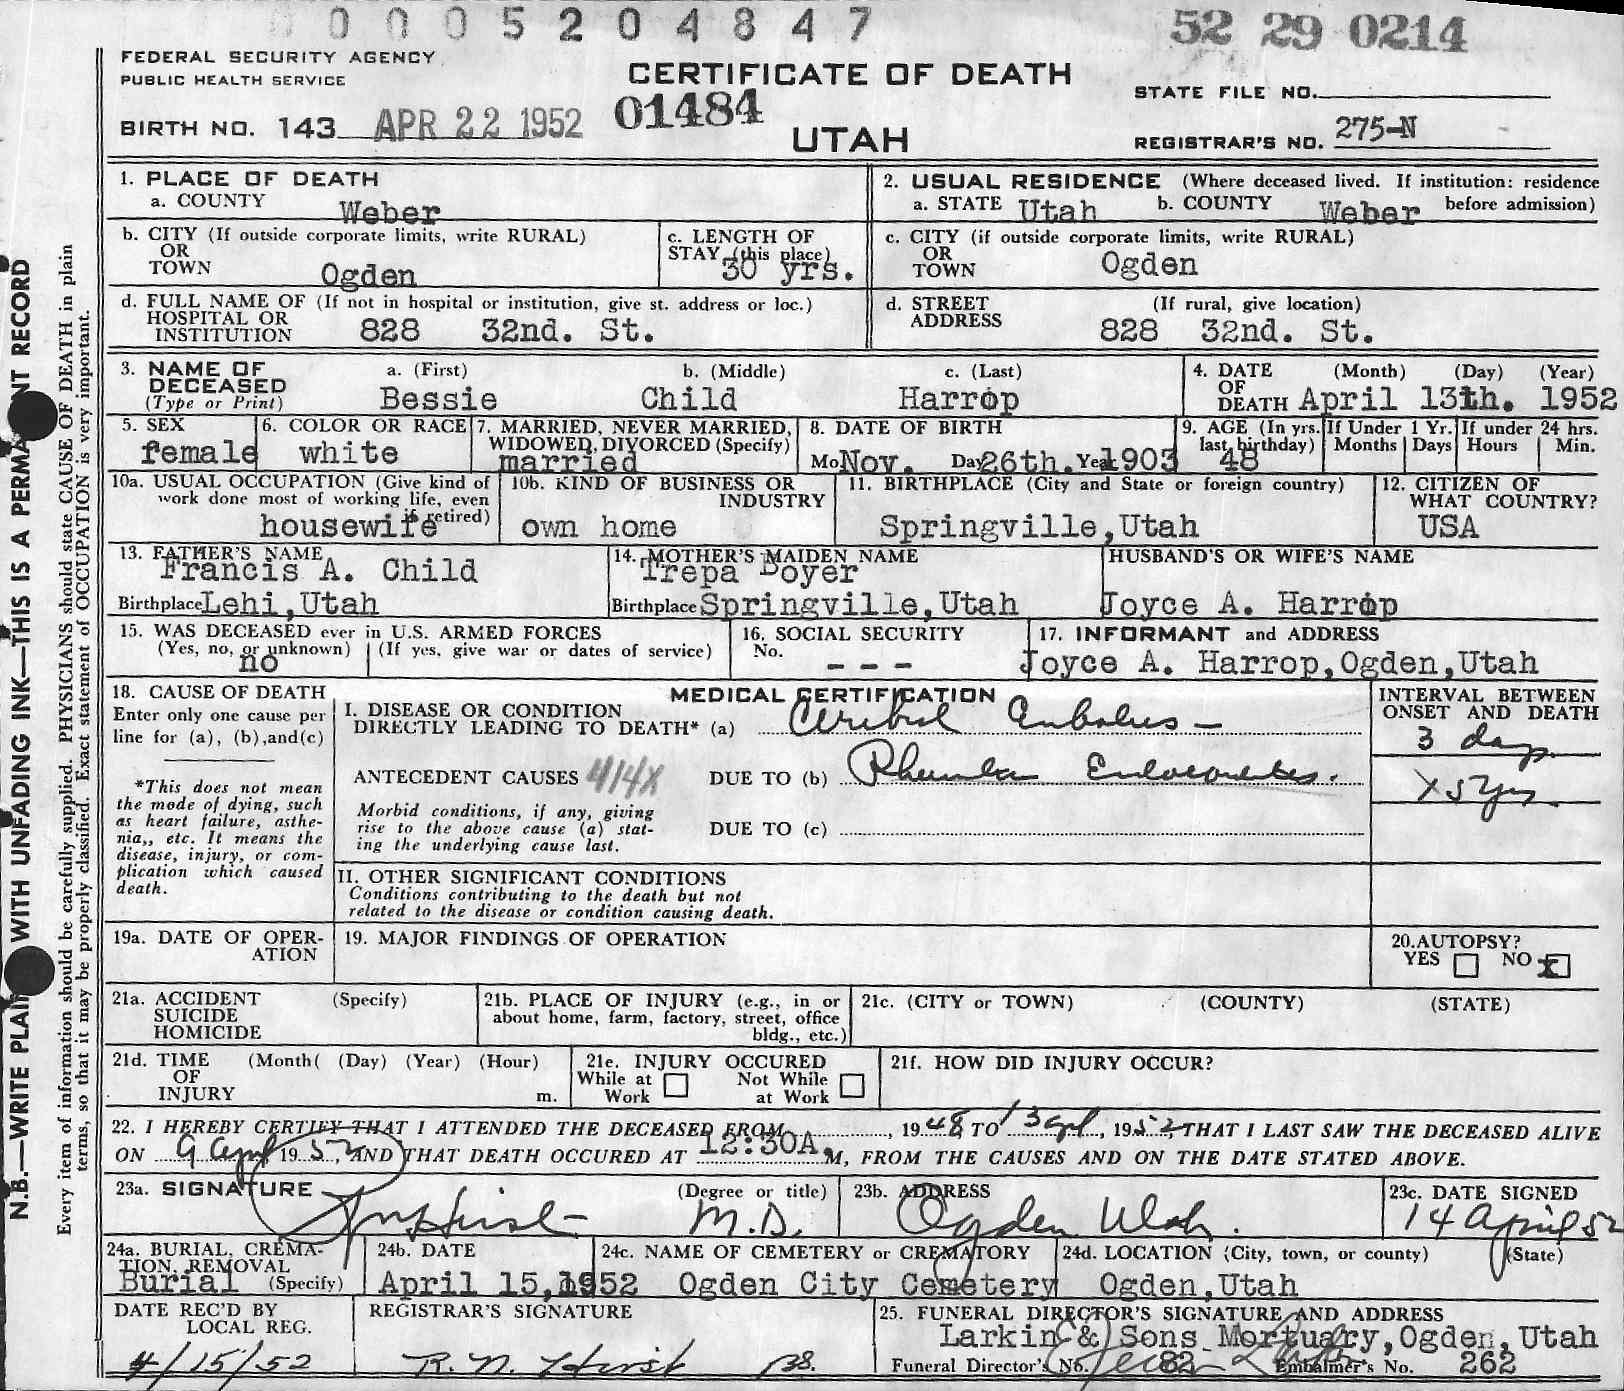 0005204847 52 29 0214
FEDERAL SECURITY AGENCY
PUBLIC HEALTH SERVICE
CERTIFICATE OF DEATH
STATE FILE NO.
BIRTH NO. 143 APR 22 1952 01484
UTAH
REGISTRAR'S NO. 275-N
1. PLACE OF DEATH
a. COUNTY Weber
2. USUAL RESIDENCE (Where deceased lived. If institution: residence before admission)
a. STATE Utah b. COUNTY Weber
b. CITY (If outside corporate limits, write RURAL)
OR
TOWN Ogden
c. LENGTH OF
STAY (this place)
30 yrs.
c. CITY (if outside corporate limits, write RURAL)
OR
TOWN Ogden
d. FULL NAME OF (If not in hospital or institution, give st. address or loc.)
HOSPITAL OR
INSTITUTION 828 32nd. St.
d. STREET (If rural, give location)
ADDRESS 828 32nd. St.
3. NAME OF a. (First) b. (Middle) c. (Last)
DECEASED
(Type or Print) Bessie Child Harrop
4. DATE (Month) (Day) (Year)
OF
DEATH April 13th. 1952
5. SEX
female
6. COLOR OR RACE
white
7. MARRIED, NEVER MARRIED,
WIDOWED, DIVORCED (Specify)
married
8. DATE OF BIRTH
Mo Nov. Day 26th. Year 1903
9. AGE (In yrs.
last birthday)
48
If Under 1 Yr.
Months Days
If under 24 hrs.
Hours Min.
10a. USUAL OCCUPATION (Give kind of
work done most of working life, even
if retired)
housewife
10b. KIND OF BUSINESS OR
INDUSTRY
own home
11. BIRTHPLACE (City and State or foreign country)
Springville,Utah
12. CITIZEN OF
WHAT COUNTRY?
USA
13. FATHER'S NAME
Francis A. Child
Birthplace Lehi,Utah
14. MOTHER'S MAIDEN NAME
Trepa Boyer
Birthplace Springville,Utah
HUSBAND'S OR WIFE'S NAME
Joyce A. Harrop
15. WAS DECEASED ever in U.S. ARMED FORCES
(Yes, no, or unknown) (If yes, give war or dates of service)
no
16. SOCIAL SECURITY
No. - - -
17. INFORMANT and ADDRESS
Joyce A. Harrop,Ogden,Utah
18. CAUSE OF DEATH
Enter only one cause per
line for (a), (b),and(c)
*This does not mean
the mode of dying, such
as heart failure, asthe-
nia,, etc. It means the
disease, injury, or com-
plication which caused
death.
MEDICAL CERTIFICATION
I. DISEASE OR CONDITION
DIRECTLY LEADING TO DEATH* (a) Cerebral Embolus -
ANTECEDENT CAUSES 414X DUE TO (b) Rheumatic Endocarditis.
Morbid conditions, if any, giving
rise to the above cause (a) stat-
ing the underlying cause last.
DUE TO (c)
II. OTHER SIGNIFICANT CONDITIONS
Conditions contributing to the death but not
related to the disease or condition causing death.
INTERVAL BETWEEN
ONSET AND DEATH
3 days
X 5 yrs.
19a. DATE OF OPER-
ATION
19. MAJOR FINDINGS OF OPERATION
20.AUTOPSY?
YES NO X
21a. ACCIDENT (Specify)
SUICIDE
HOMICIDE
21b. PLACE OF INJURY (e.g., in or
about home, farm, factory, street, office
bldg., etc.)
21c. (CITY or TOWN) (COUNTY) (STATE)
21d. TIME (Month( (Day) (Year) (Hour)
OF
INJURY m.
21e. INJURY OCCURED
While at Work Not While at Work
21f. HOW DID INJURY OCCUR?
22. I HEREBY CERTIFY THAT I ATTENDED THE DECEASED FROM , 1948, TO 13 Apl, 1952, THAT I LAST SAW THE DECEASED ALIVE
ON 9 April 1952, AND THAT DEATH OCCURED AT 12:30A. M, FROM THE CAUSES AND ON THE DATE STATED ABOVE.
23a. SIGNATURE (Degree or title)
Hirst M.D.
23b. ADDRESS
Ogden Utah.
23c. DATE SIGNED
14 April 52
24a. BURIAL, CREMA-
TION, REMOVAL
Burial (Specify)
24b. DATE
April 15,1952
24c. NAME OF CEMETERY or CREMATORY
Ogden City Cemetery
24d. LOCATION (City, town, or county) (State)
Ogden,Utah
DATE REC'D BY
LOCAL REG.
4/15/52
REGISTRAR'S SIGNATURE
R. N. Hirst
25. FUNERAL DIRECTOR'S SIGNATURE AND ADDRESS
Larkin & Sons Mortuary,Ogden,Utah
Funeral Director's No. 82 Embalmer's No. 262
N.B.—WRITE PLAINLY WITH UNFADING INK—THIS IS A PERMANENT RECORD
Every item of information should be carefully supplied. PHYSICIANS should state CAUSE OF DEATH in plain
terms, so that it may be properly classified. Exact statement of OCCUPATION is very important.